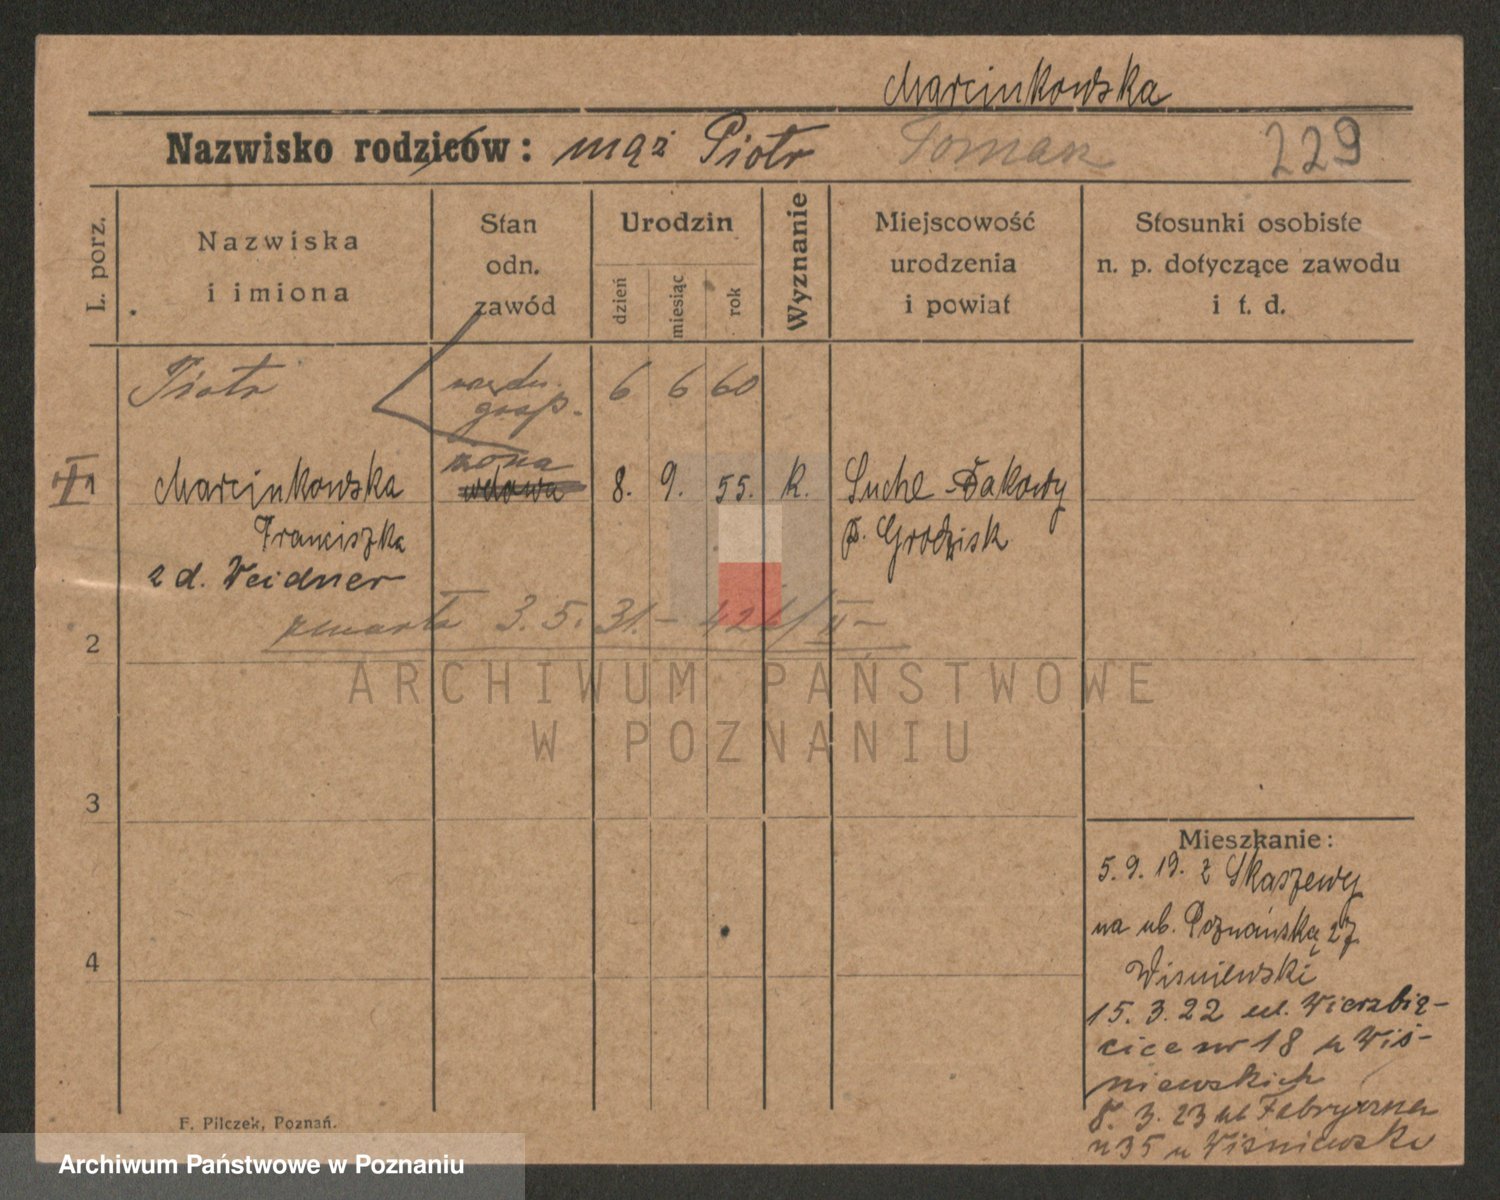 Marcinkowska
Nazwisko rodziców: mąż Piotr Toman 229
L. porz.
Nazwiska
i imiona
Stan
odn.
zawód
Urodzin
dzień
miesiąc
rok
Wyznanie
Miejscowość
urodzenia
i powiat
Stosunki osobiste
n. p. dotyczące zawodu
i t. d.
Piotr 6 6 60
żona
Marcinkowska wdowa 8. 9. 55. k. Suche
Franciszka p. Grodzisk
z d. Weidner
zmarła 3. 5. 31. -
2
3
4
ARCHIWUM PAŃSTWOWE
W POZNANIU
Mieszkanie:
5. 9. 19. z Skaszewy
na ul. Poznańską 27
Wisniewski
15. 3. 22 ul. Wierzbię-
cice nr 18 u Wiś-
niewskich
8. 3. 23 ul Fabryczna
n 35 u Wiśniewski
F. Pilczek, Poznań.
Archiwum Państwowe w Poznaniu